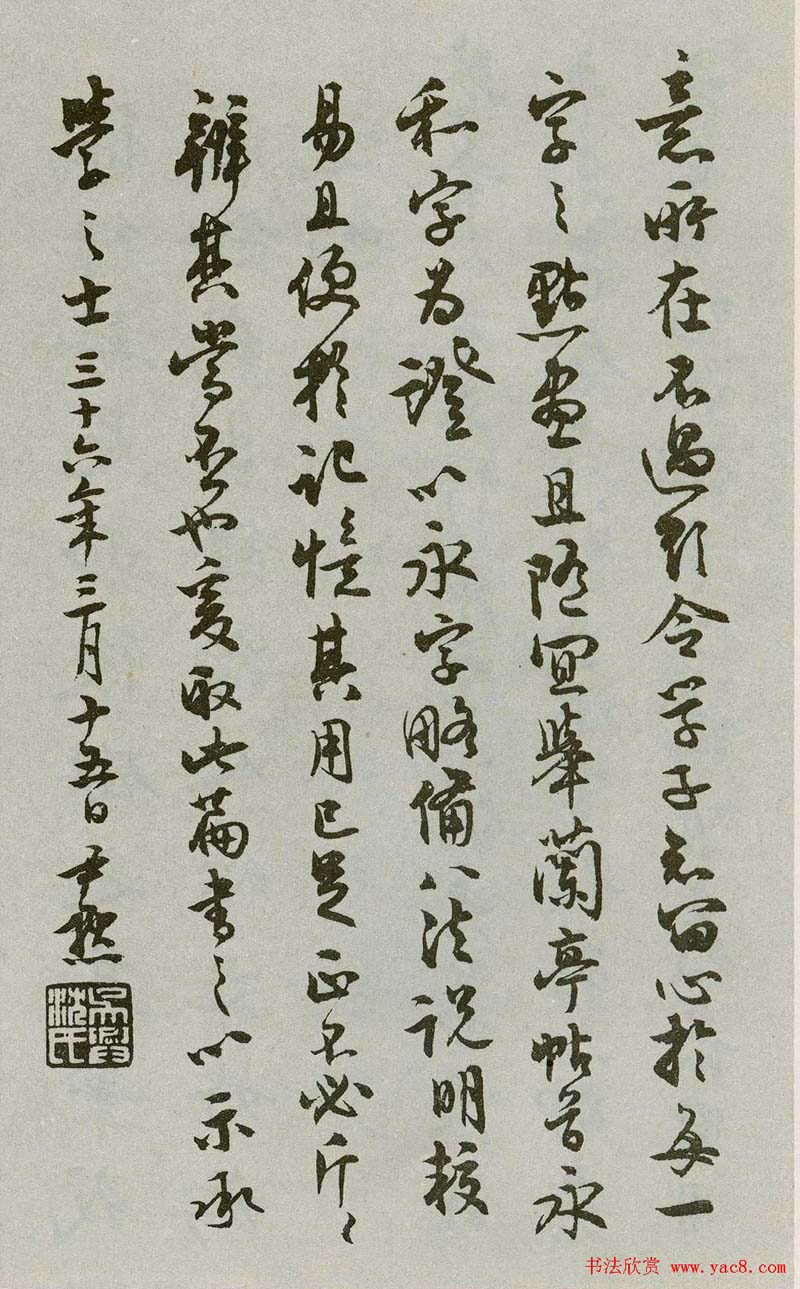 意所在不過欲令学子知留心於每一
字之點畫且隨宜舉蘭亭帖首永
和字為證以永字略備八法説明較
易且便於記憶其用已足正不必斤斤
辨其當否也爰取此篇書之以示承
學之士三十六年三月十五日尹默
吳興沈氏
书法欣赏 www.yac8.com